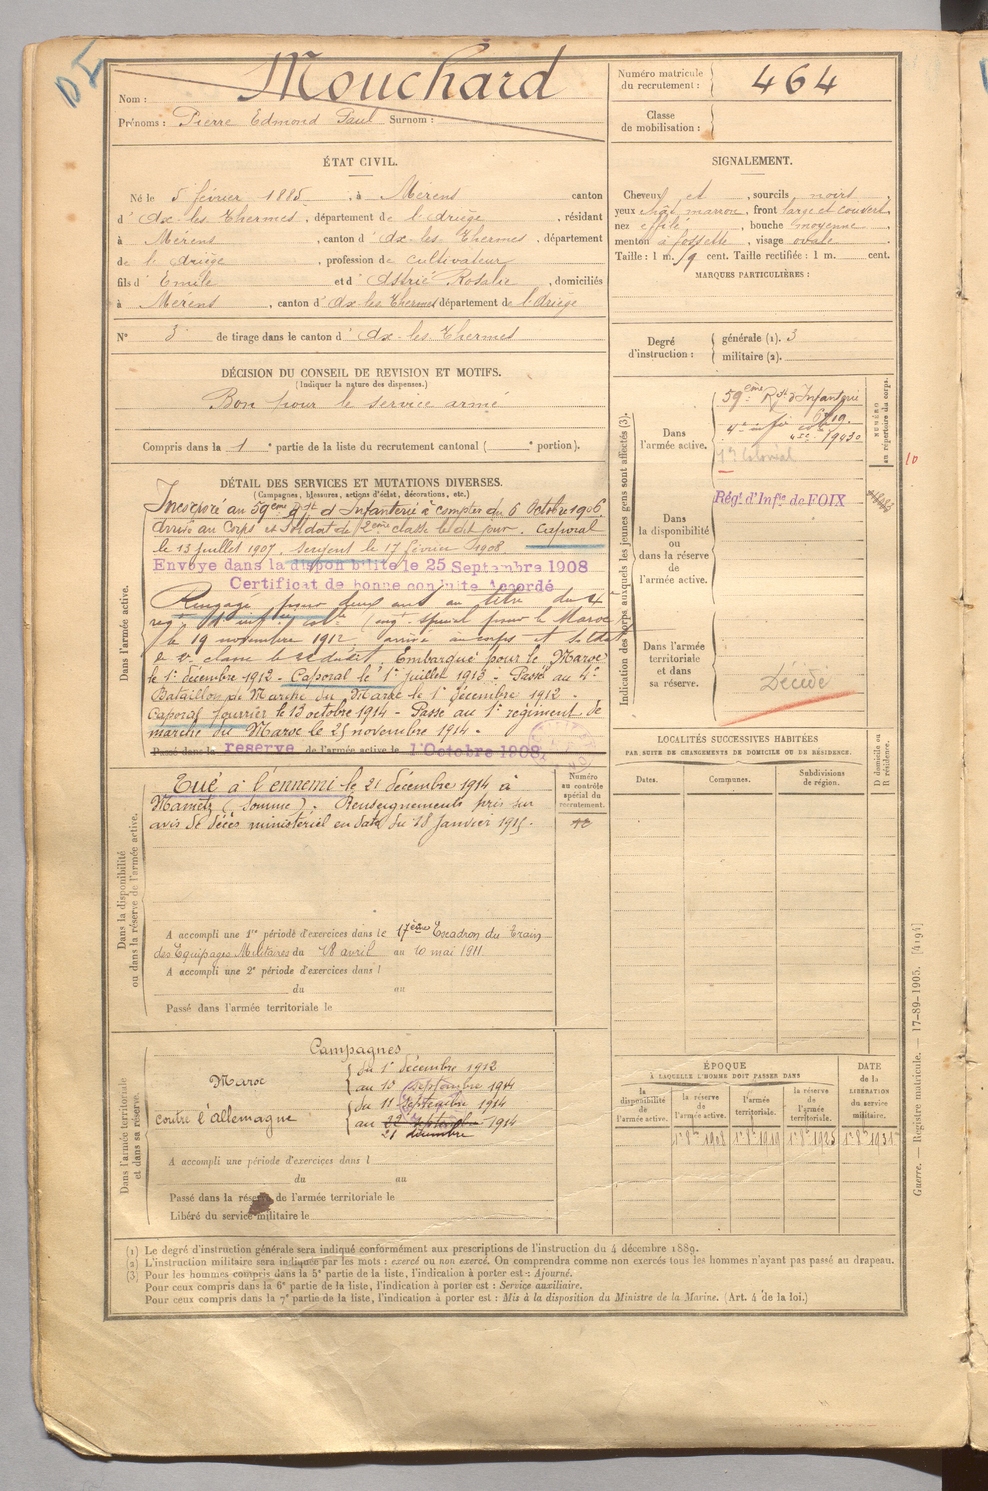 Mouchard
Nom :
Prénoms : Pierre Edmond Paul Surnom :
Numéro matricule
du recrutement : 464
Classe
de mobilisation :
ÉTAT CIVIL.
Né le 5 février 1885, à Mérens canton
d' Ax-les-Thermes, département de l'Ariège, résidant
à Mérens, canton d' Ax-les-Thermes, département
de l'Ariège, profession de cultivateur
fils d' Emile et d' Astrié Rosalie, domiciliés
à Mérens, canton d' Ax-les-Thermes département de l'Ariège
N° 3 de tirage dans le canton d' Ax-les-Thermes
SIGNALEMENT.
Cheveux et, sourcils noirs
yeux marron, front large et couvert,
nez effilé, bouche moyenne,
menton à fossette, visage ovale.
Taille : 1 m. cent. Taille rectifiée : 1 m. cent.
MARQUES PARTICULIÈRES :
Degré
d'instruction :
générale (1). 3
militaire (2).
DÉCISION DU CONSEIL DE REVISION ET MOTIFS.
(Indiquer la nature des dispenses.)
Bon pour le service armé
Compris dans la 1 e partie de la liste du recrutement cantonal ( e portion).
DÉTAIL DES SERVICES ET MUTATIONS DIVERSES.
(Campagnes, blessures, actions d'éclat, décorations, etc.)
Dans l'armée active.
Incorporé au 59ème Rgt d'Infanterie à compter du 6 Octobre 1906
arrivé au Corps et Soldat de 2ème classe le dit jour. Caporal
le 13 juillet 1907. Sergent le 17 février 1908.
Envoyé dans la disponibilité le 25 Septembre 1908
Certificat de bonne conduite Accordé
Rengagé pour deux ans au titre du 4
reg d'inf col eng spécial pour le Maroc
le 19 novembre 1912 arrivé au corps et soldat
de 2e classe le dit Embarqué pour le Maroc
le 1er décembre 1912 - Caporal le 1er juillet 1913 - Passé au 4e
Bataillon de Marche du Maroc le 1er décembre 1912 -
Caporal fourrier le 13 octobre 1914 - Passé au 1er régiment de
marche du Maroc le 25 novembre 1914 -
Passé dans la réserve de l'armée active le 1 Octobre 1908
Indication des corps auxquels les jeunes gens sont affectés (3).
NUMÉRO
au répertoire du corps.
Dans
l'armée active.
59ème Rgt d'Infanterie
4e inf col
Colonial
10
Dans
la disponibilité
ou
dans la réserve
de
l'armée active.
Régt d'Infie de FOIX
Dans l'armée
territoriale
et dans
sa réserve.
Décédé
Dans la disponibilité
ou dans la réserve de l'armée active.
Tué à l'ennemi le 21 décembre 1914 à
Mametz (Somme). Renseignements pris sur
avis de décès ministériel en date du 18 janvier 1915.
Numéro
au contrôle
spécial du
recrutement.
A accompli une 1re période d'exercices dans le 17ème Escadron du Train
des Equipages Militaires du 18 avril au 10 mai 1911
A accompli une 2e période d'exercices dans l
du au
Passé dans l'armée territoriale le
LOCALITÉS SUCCESSIVES HABITÉES
PAR SUITE DE CHANGEMENTS DE DOMICILE OU DE RÉSIDENCE.
Dates.
Communes.
Subdivisions
de région.
D domicile ou
R résidence.
Dans l'armée territoriale
et dans sa réserve.
Campagnes
Maroc
du 1er décembre 1912
au 10 septembre 1914
contre l'Allemagne
du 11 Septembre 1914
au 1914
21 décembre
A accompli une période d'exercices dans l
du au
Passé dans la réserve de l'armée territoriale le
Libéré du service militaire le
ÉPOQUE
À LAQUELLE L'HOMME DOIT PASSER DANS
la
disponibilité
de
l'armée active.
la réserve
de
l'armée active.
l'armée
territoriale.
la réserve
de
l'armée
territoriale.
DATE
de la
LIBÉRATION
du service
militaire.
1er 8bre 1908
1er 8bre 1919
1er 8bre 1925
1er 8bre 1931
Guerre. — Registre matricule. — 17-89-1905. [4194]
(1) Le degré d'instruction générale sera indiqué conformément aux prescriptions de l'instruction du 4 décembre 1889.
(2) L'instruction militaire sera indiquée par les mots : exercé ou non exercé. On comprendra comme non exercés tous les hommes n'ayant pas passé au drapeau.
(3) Pour les hommes compris dans la 5e partie de la liste, l'indication à porter est : Ajourné.
Pour ceux compris dans la 6e partie de la liste, l'indication à porter est : Service auxiliaire.
Pour ceux compris dans la 7e partie de la liste, l'indication à porter est : Mis à la disposition du Ministre de la Marine. (Art. 4 de la loi.)